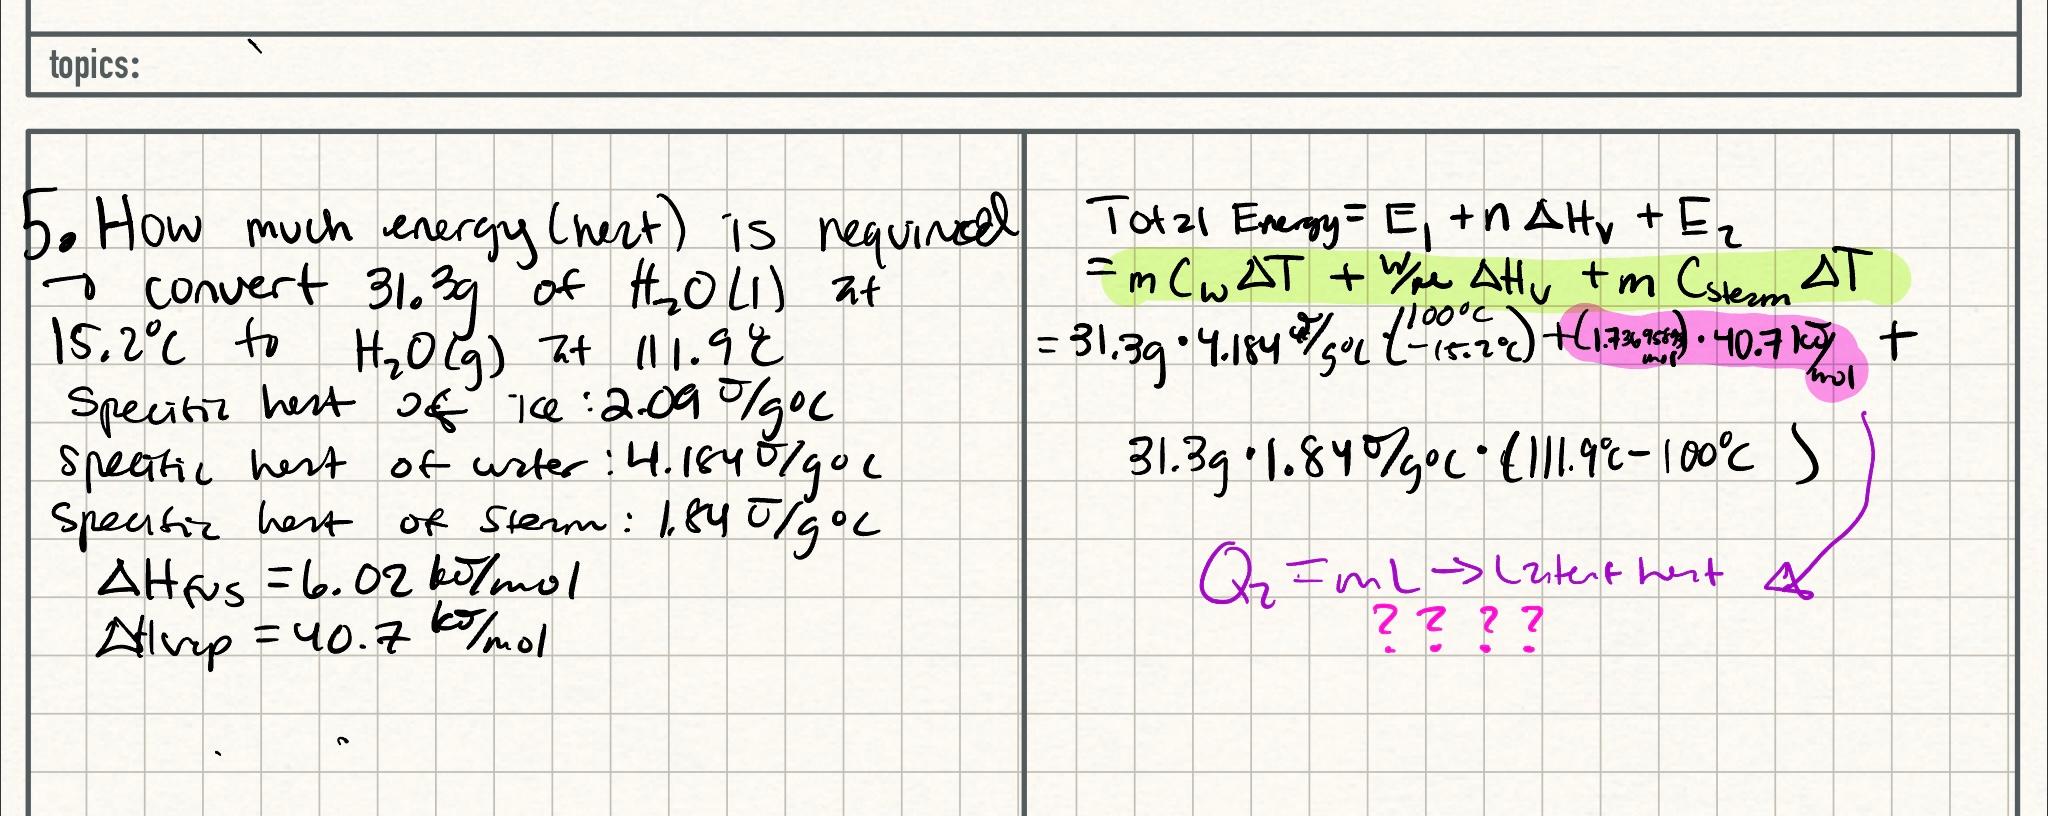 topics:
5. How much energy (heat) is required
→ convert 31.3g of H₂O(l) at
15.2°C to H₂O(g) at 111.9°C
Specific heat of ice: 2.09 J/g°C
specific heat of water: 4.184 J/g°C
specific heat of steam: 1.84 J/g°C
ΔHfus = 6.02 kJ/mol
ΔHvap = 40.7 kJ/mol
Total Energy = E₁ + n ΔHv + E₂
= m Cw ΔT + ΔHv + m Csteam ΔT
= 31.3g · 4.184 J/g°C (100°C - 15.2°C) + ( mol) · 40.7 kJ/mol +
31.3g · 1.84 J/g°C · (111.9°C - 100°C )
Q₂ = mL → Latent heat
? ? ? ?